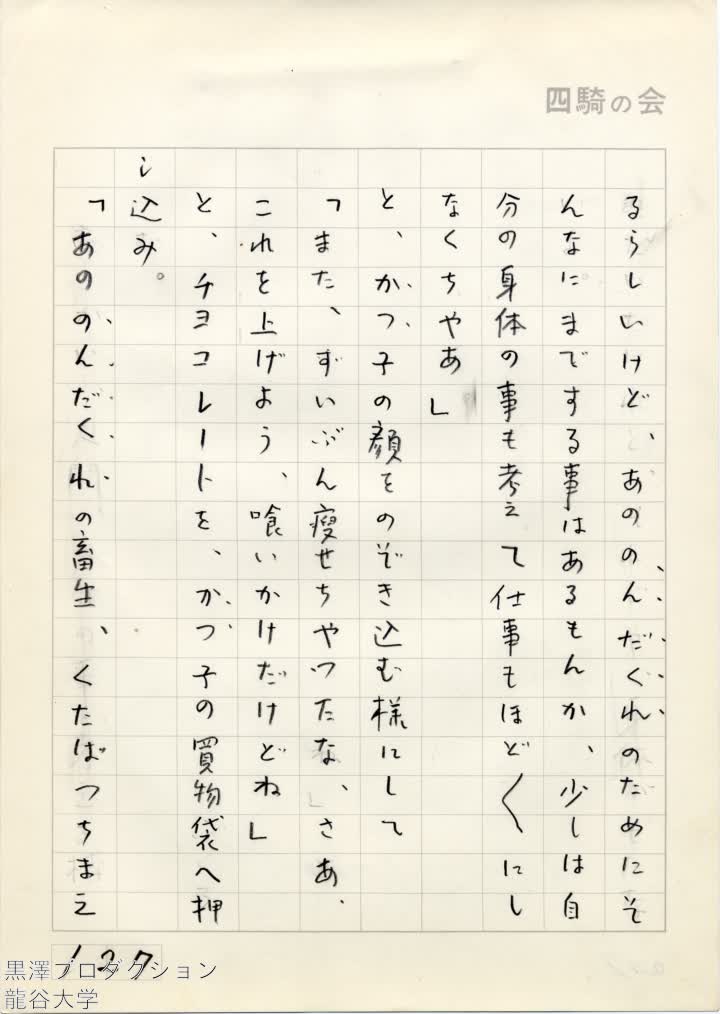 四騎の会
るらしいけど、あののんだくれのためにそ
んなにまでする事はあるもんか、少しは自
分の身体の事も考えて仕事もほど〱にし
なくちやあ」
と、かつ子の顔をのぞき込む様にして
「また、ずいぶん瘦せちやつたな、さあ、
これを上げよう、喰いかけだけどね」
と、チヨコレートを、かつ子の買物袋へ押
し込み。
「あののんだくれの畜生、くたばつちまえ
127
黒澤プロダクション
龍谷大学